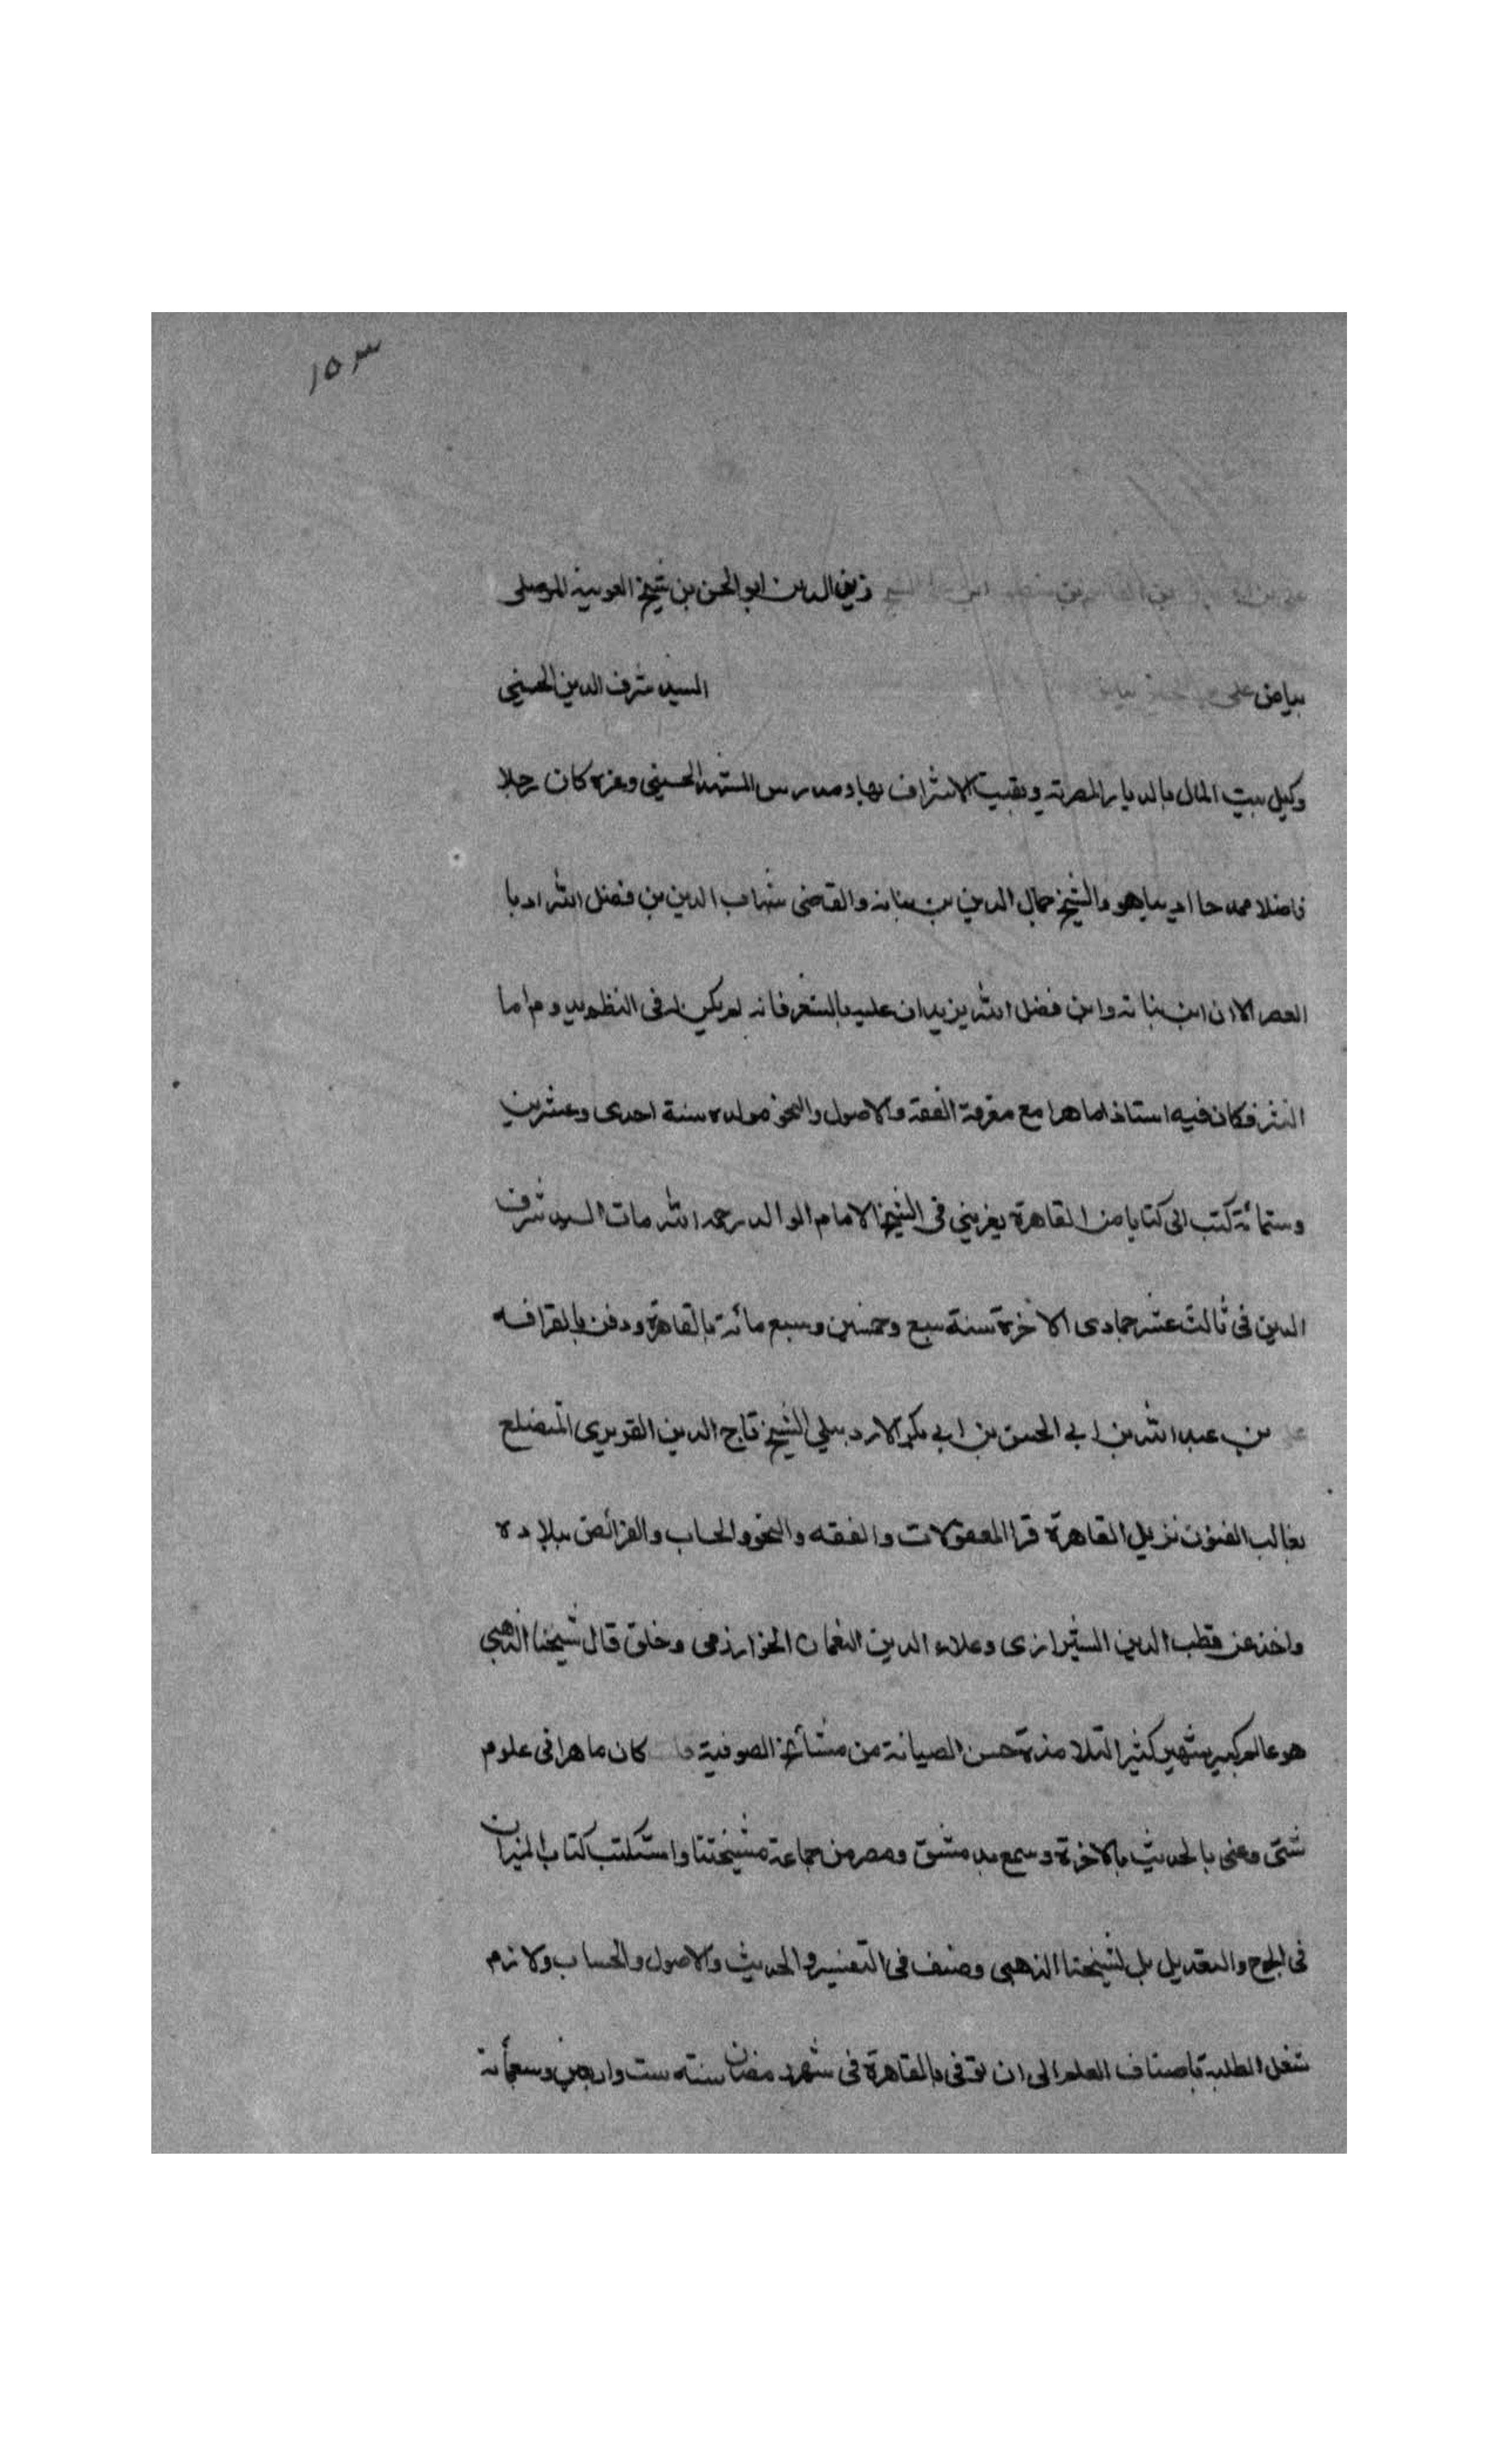 ١٥٣
علي بن الحسين بن القاسم بن منصور بن علي الشيخ زين الدين ابو الحسن بن شيخ العوينة الموصلى
بياض علي بن الحسين السيد شرف الدين الحسيني
وكيل بيت المال بالديار المصرية ونقيب الاشراف بها ومدرس المشهد الحسيني وغره كان رجلا
فاضلا ممدحا اديبا هو والشيخ جمال الدين بن نباته والقاضى شهاب الدين بن فضل الله ادبا
العصر الا ان ابن نباته وابن فضل الله يزيدان عليه بالشعر فانه لم يكن له فى النظم يد واما
النثر فكان فيه استاذا ماهرا مع معرفة الفقه والاصول والنحو مولده سنة احدى وعشرين
وستمائة كتب الى كتابا من القاهرة يعزيني فى الشيخ الامام الوالد رحمه الله مات السيد شرف
الدين فى ثالث عشر جمادى الاخرة سنة سبع وخمسين وسبع مائة بالقاهرة ودفن بالقرافه
علي بن عبد الله بن ابي الحسن بن ابي بكر الاردبيلي الشيخ تاج الدين التبريزي المتضلع
بغالب الفنون نزيل القاهرة قرا المعقولات والفقه والنحو والحساب والفرائض ببلاده
واخذ عن قطب الدين الشيرازى وعلاء الدين النعمان الخوارزمى وخلق قال شيخنا الذهبي
هو عالم كبير شهير كثير التلامذة حسن الصيانة من مشائخ الصوفية قلت كان ماهرا فى علوم
شتى وعنى بالحديث بالاخرة وسمع بدمشق ومصر من جماعة مشيختنا واستكتب كتاب الميزان
فى الجرح والتعديل بل لشيخنا الذهبي وصنف فى التفسير والحديث والاصول والحساب ولازم
شغل الطلبة باصناف العلم الى ان توفى بالقاهرة فى شهر رمضان سنة ست واربعين وسبعمائة